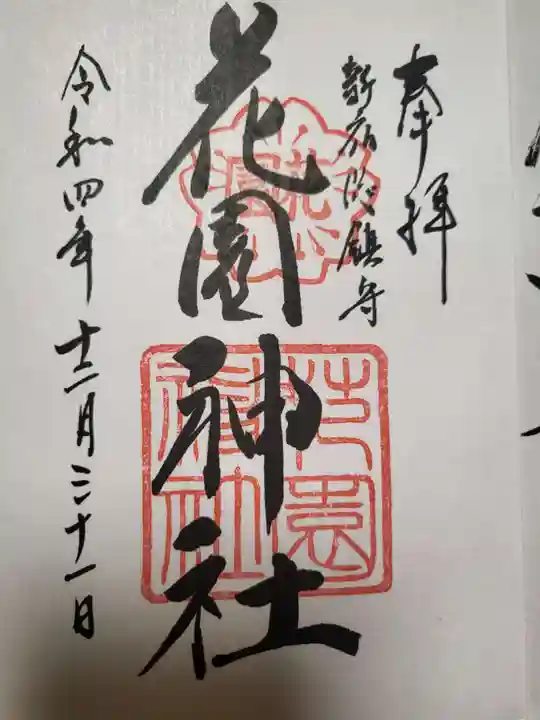 奉拝
新宿総鎮守
花園神社
花園神社
令和四年十二月三十一日